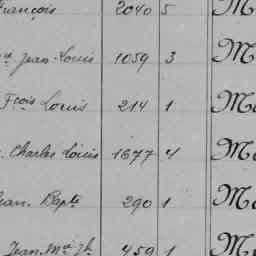 François 2040 5 M
Jean Louis 1059 3 M
Fçois Louis 214 1 Ma
Charles Louis 1677 4 Ma
Jean Bapte 290 1 Ma
Jean Mie Jh 459 1 M